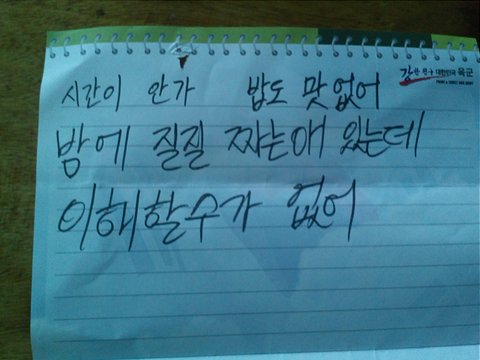 강한 친구 대한민국 육군
시간이 안가 밥도 맛없어
밤에 질질 짜는애 있는데
이해할수가 없어